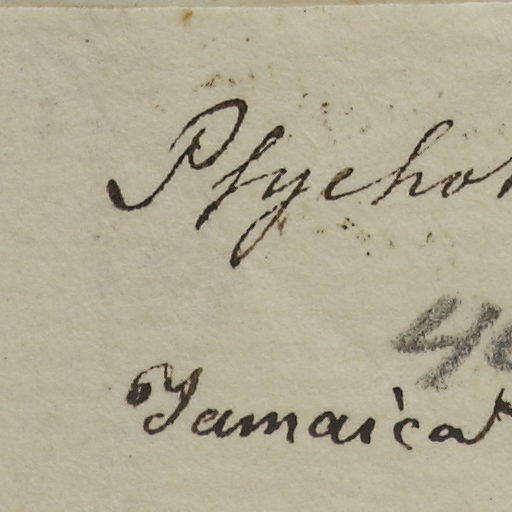 Psycho
4
Jamaica